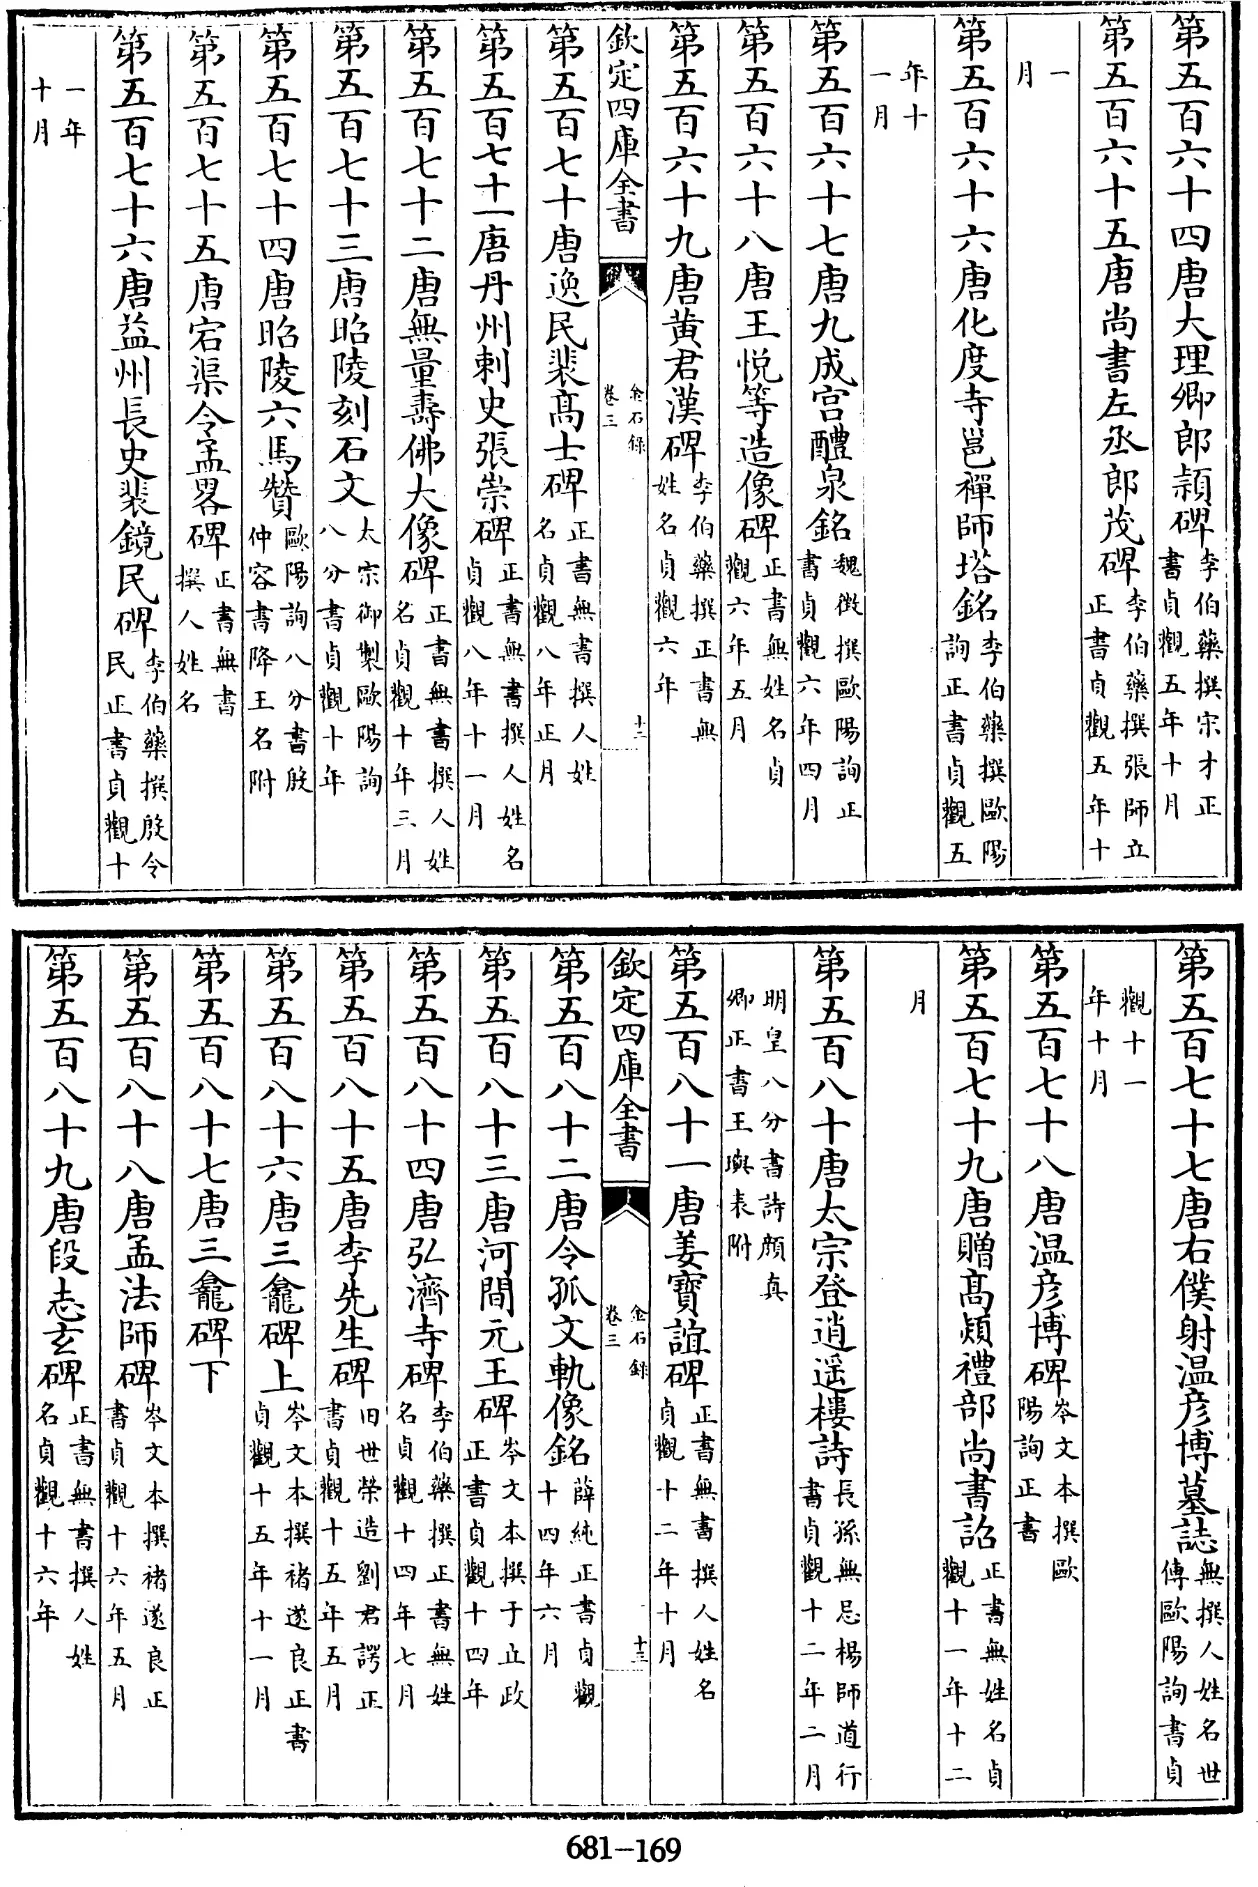 第五百六十四唐大理卿郎頴碑李伯藥撰宋才正書貞觀五年十月
第五百六十五唐尚書左丞郎茂碑李伯藥撰張師立正書貞觀五年十
一月
第五百六十六唐化度寺邕禪師塔銘李伯藥撰歐陽詢正書貞觀五
年十一月
第五百六十七唐九成宫醴泉銘魏徴撰歐陽詢正書貞觀六年四月
第五百六十八唐王悦等造像碑正書無姓名貞觀六年五月
第五百六十九唐黄君漢碑李伯藥撰正書無姓名貞觀六年
欽定四庫全書
金石錄卷三
十二
第五百七十唐逸民裴髙士碑正書無書撰人姓名貞觀八年正月
第五百七十一唐丹州刺史張崇碑正書無書撰人姓名貞觀八年十一月
第五百七十二唐無量壽佛大像碑正書無書撰人姓名貞觀十年三月
第五百七十三唐昭陵刻石文太宗御製歐陽詢八分書貞觀十年
第五百七十四唐昭陵六馬贊歐陽詢八分書殷仲容書降王名附
第五百七十五唐宕渠令孟畧碑正書無書撰人姓名
第五百七十六唐益州長史裴鏡民碑李伯藥撰殷令民正書貞觀十
一年十月
第五百七十七唐右僕射温彦博墓誌無撰人姓名世傳歐陽詢書貞
觀十一年十月
第五百七十八唐温彦博碑岑文本撰歐陽詢正書
第五百七十九唐贈髙熲禮部尚書詔正書無姓名貞觀十一年十二
月
第五百八十唐太宗登逍遥樓詩長孫無忌楊師道行書貞觀十二年二月
明皇八分書詩顔真卿正書王璵表附
第五百八十一唐姜寶誼碑正書無書撰人姓名貞觀十二年十月
欽定四庫全書
金石録卷三
十三
第五百八十二唐令孤文軌像銘薛純正書貞觀十四年六月
第五百八十三唐河間元王碑岑文本撰于立政正書貞觀十四年
第五百八十四唐弘濟寺碑李伯藥撰正書無姓名貞觀十四年七月
第五百八十五唐李先生碑旧世榮造劉君諤正書貞觀十五年五月
第五百八十六唐三龕碑上岑文本撰褚遂良正書貞觀十五年十一月
第五百八十七唐三龕碑下
第五百八十八唐孟法師碑岑文本撰褚遂良正書貞觀十六年五月
第五百八十九唐段志玄碑正書無書撰人姓名貞觀十六年
681-169